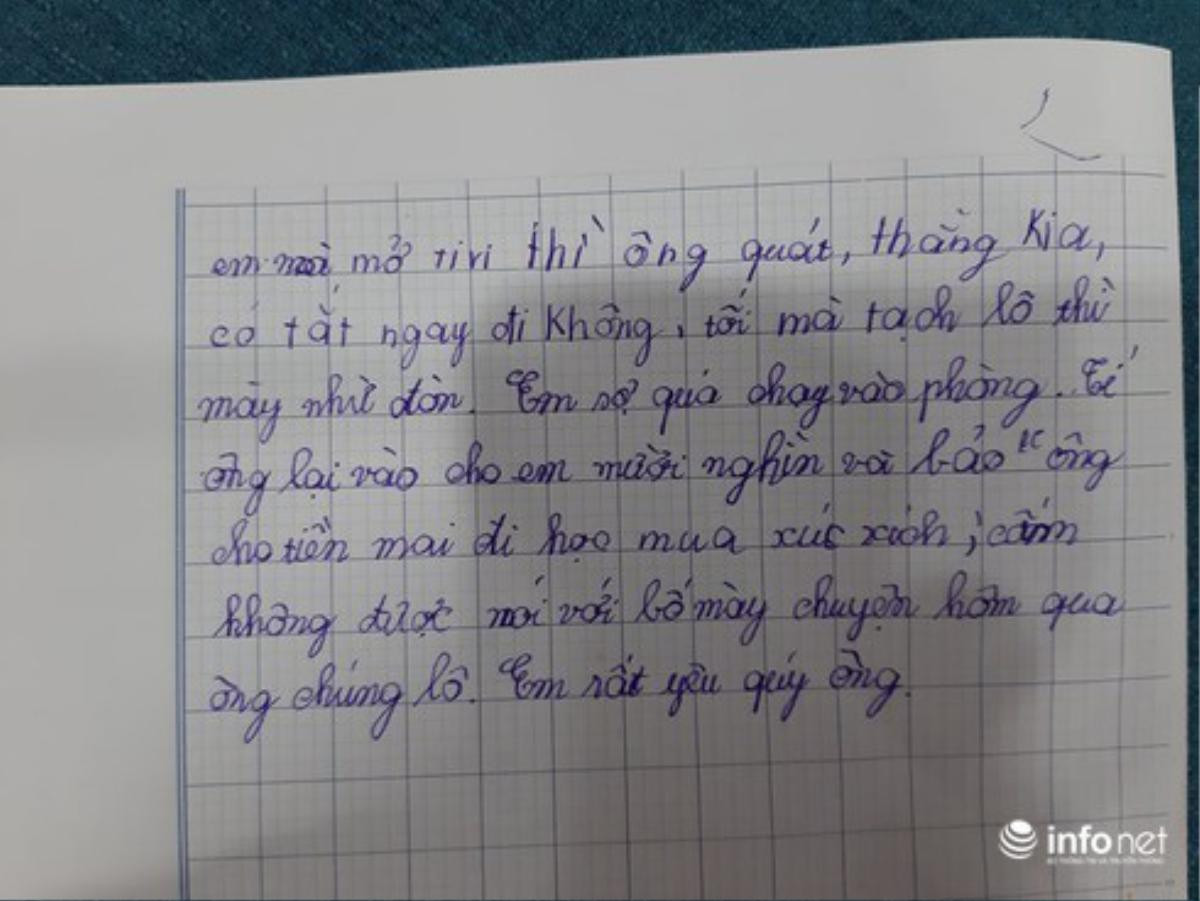 em mà mở tivi thì ông quát, thằng kia,
có tắt ngay đi không, tối mà tạch lô thì
mày nhừ đòn. Em sợ quá chạy vào phòng. Tí
ông lại vào cho em mười nghìn và bảo " ông
cho tiền mai đi học mua xúc xích, cấm
không được nói với bố mày chuyện hôm qua
ông chúng lô. Em rất yêu quý ông.
infonet